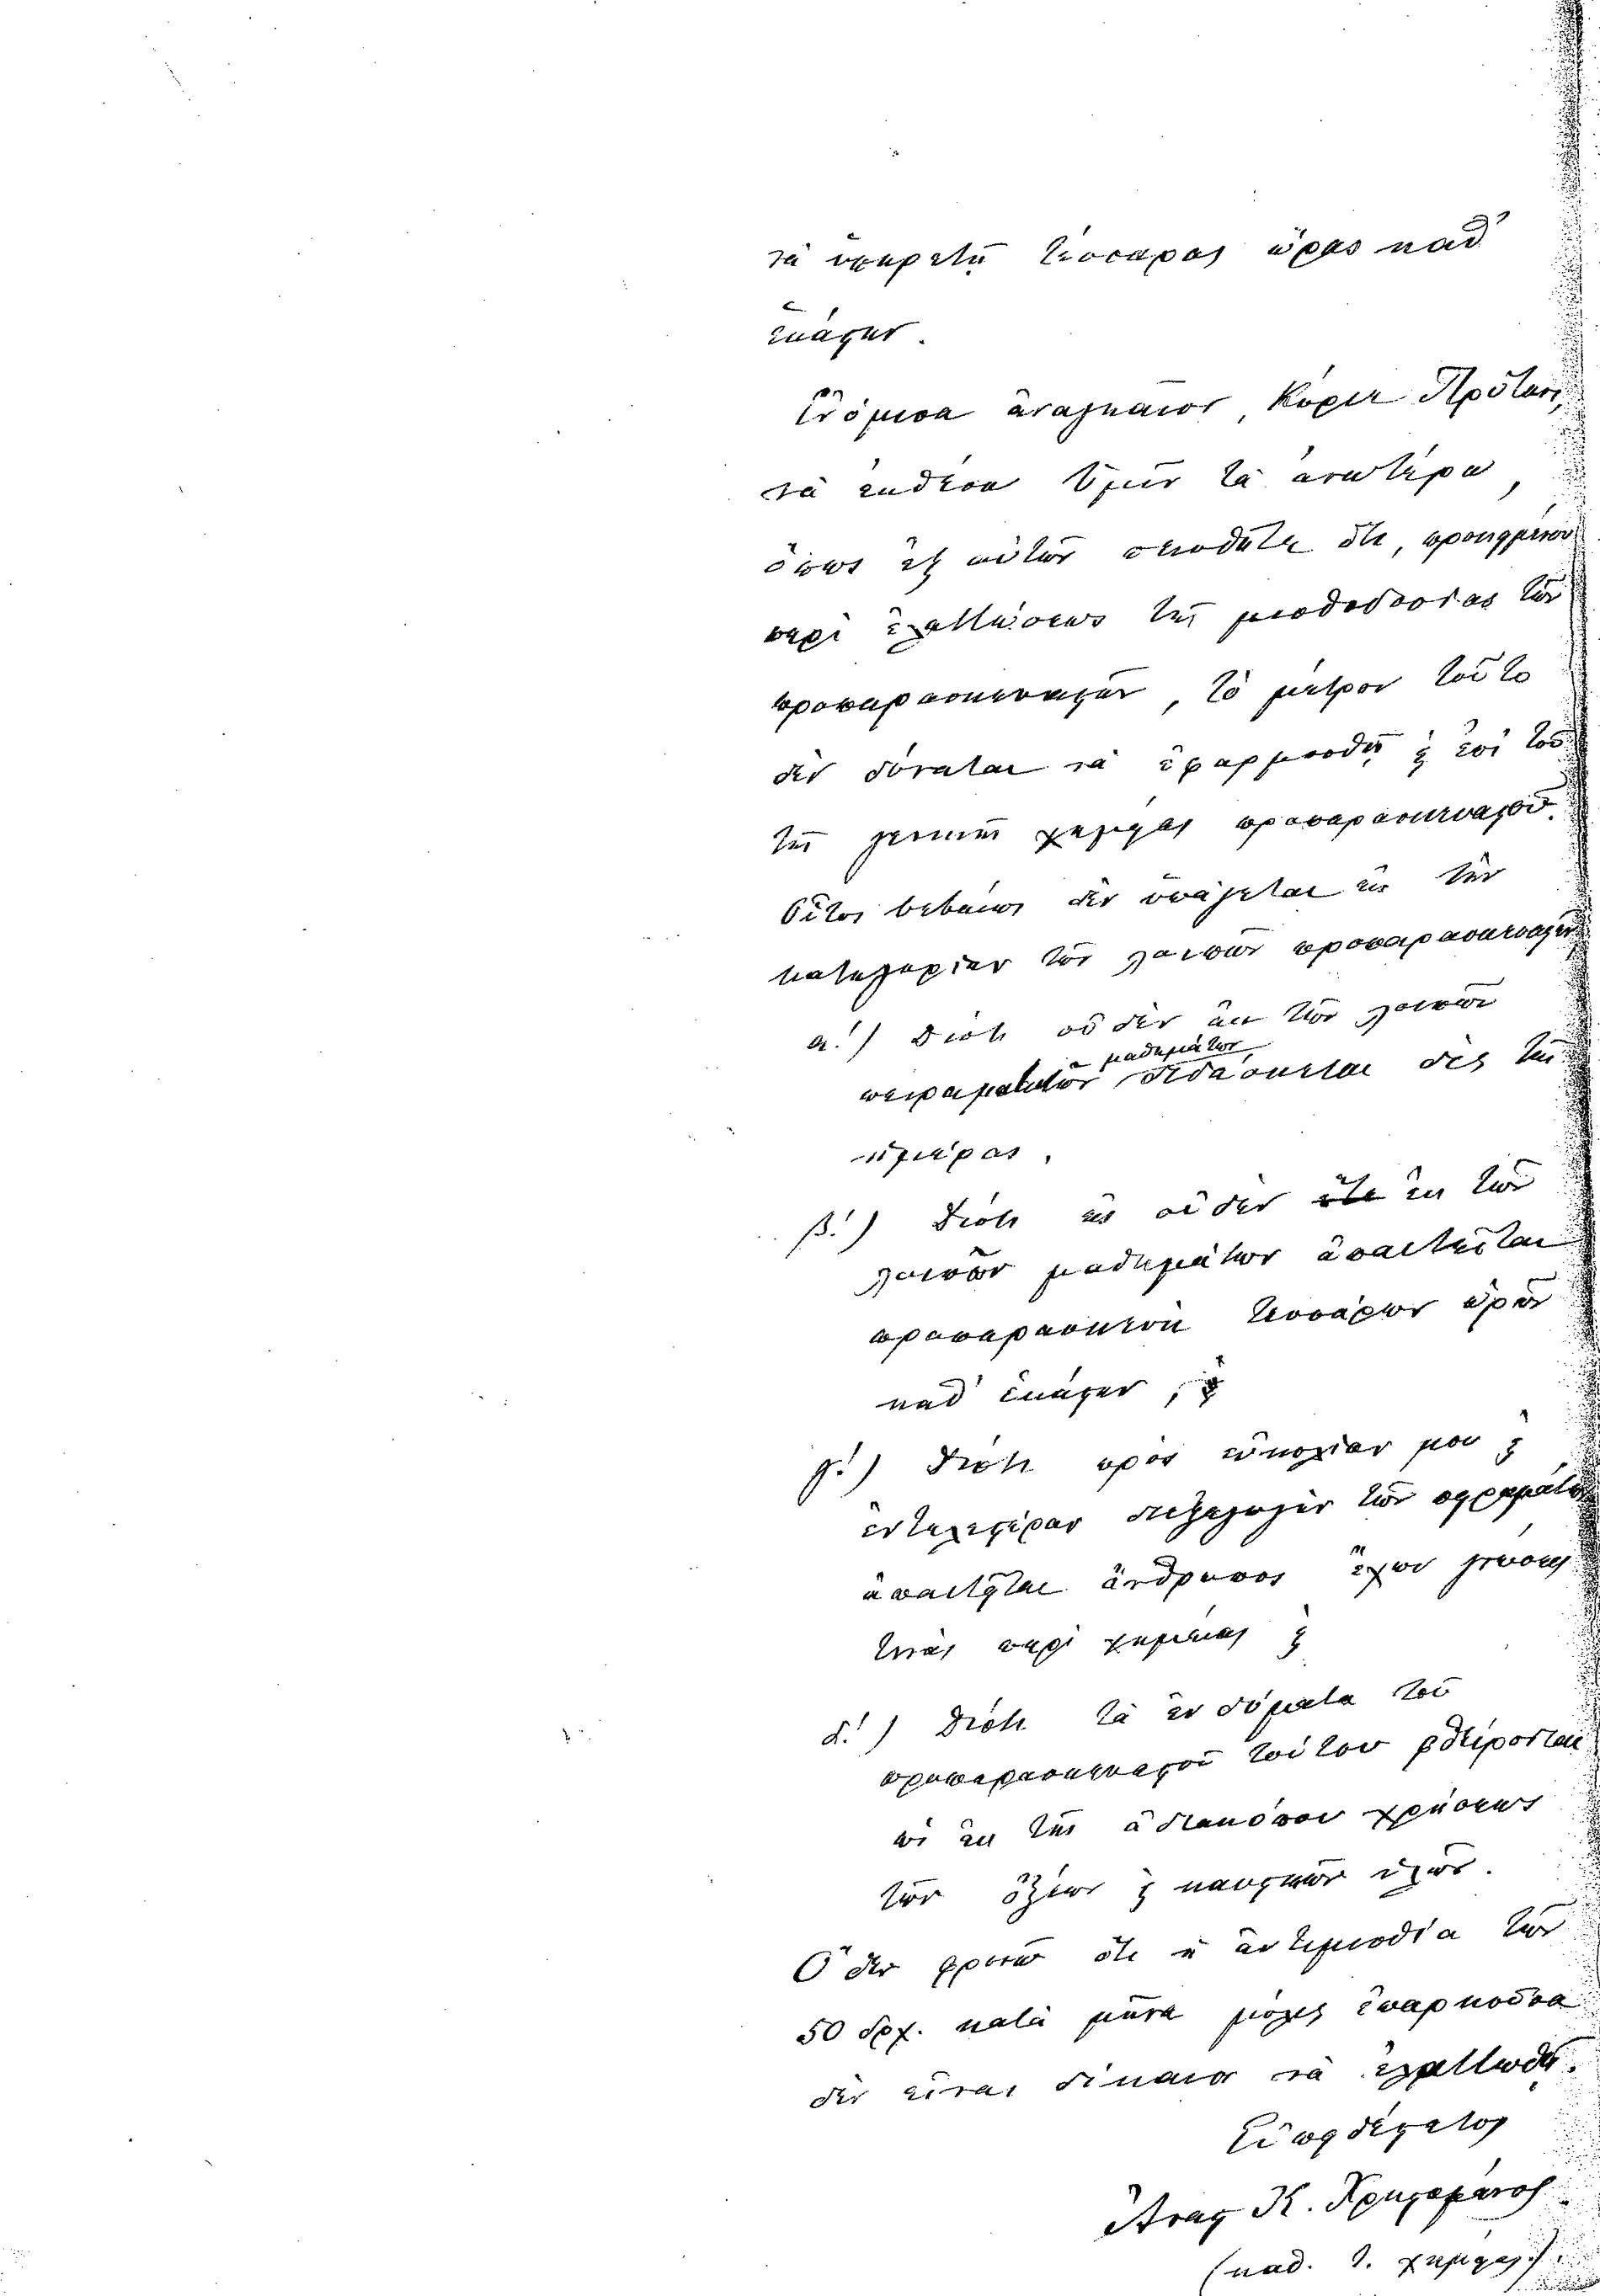 νὰ ὑπηρετῇ τέσσαρας ὥρας καθ'
ἑκάστην.
Ἐνόμισα ἀναγκαῖον, Κύριε Πρύτανι,
νὰ ἐκθέσω Ὑμῖν τὰ ἀνωτέρω,
ὅπως ἐξ αὐτῶν πεισθῆτε ὅτι, προκειμένου
περὶ ἐλαττώσεως τῆς μισθοδοσίας τῶν
προπαρασκευαστῶν, τὸ μέτρον τοῦτο
δὲν δύναται νὰ ἐφαρμοσθῇ καὶ ἐπὶ τοῦ
τῆς γενικῆς χημείας προπαρασκευαστοῦ.
Οὗτος βεβαίως δὲν ὑπάγεται εἰς τὴν
κατηγορίαν τῶν λοιπῶν προπαρασκευαστῶν
α΄.) Διότι οὐδὲν ἐκ τῶν λοιπῶν
μαθημάτων
πειραματικῶν διδάσκεται δὶς τῆς
ἡμέρας.
β΄.) Διότι εἰς οὐδὲν ἐκ τῶν
λοιπῶν μαθημάτων ἀπαιτεῖται
προπαρασκευὴ τεσσάρων ὡρῶν
καθ' ἑκάστην, καὶ
γ΄.) Διότι πρὸς εὐκολίαν μου καὶ
ἐντελεστέραν διεξαγωγὴν τῶν πειραμάτων
ἀπαιτεῖται ἄνθρωπος ἔχων γνώσεις
τινὰς περὶ χημείας καὶ
δ΄.) Διότι τὰ ἐνδύματα τοῦ
προπαρασκευαστοῦ τούτου φθείρονται
ὡς ἐκ τῆς ἀδιακόπου χρήσεως
τῶν ὀξέων καὶ καυστικῶν ὑλῶν.
Ὅθεν φρονῶ ὅτι ἡ ἀντιμισθία τῶν
50 δρχ. κατὰ μῆνα μόλις ἐπαρκοῦσα
δὲν εἶναι δίκαιον νὰ ἐλαττωθῇ.
Εὐπειθέστατος
Ἀναστ. Κ. Χρηστομάνος
(καθ. τ. χημείας).